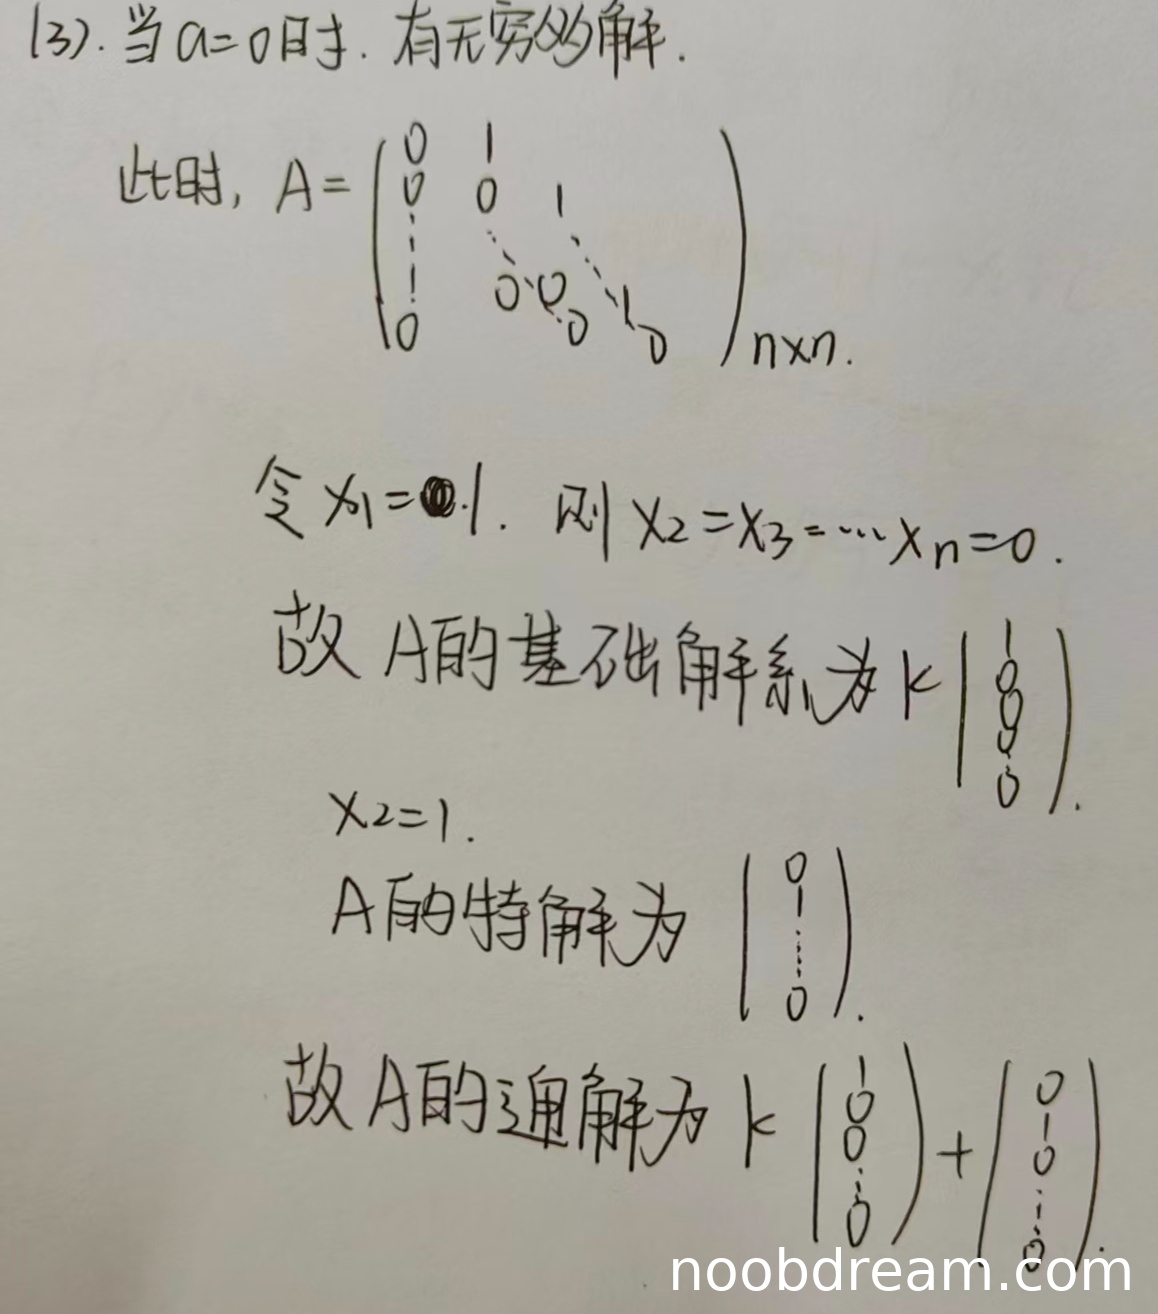 (3). 当a=0时. 有无穷多解.
此时, A= ( 0 1
0 0 1
0 0 1
0 0 0 ) n×n.
令 x1=1. 则 x2=x3=…xn=0.
故 A的基础解系为 k ( 1 0 0 0 ⋮ 0 ).
x2=1.
A的特解为 ( 0 1 ⋮ 0 ).
故A的通解为 k ( 1 0 0 ⋮ 0 ) + ( 0 1 0 ⋮ 0 ).
noobdream.com